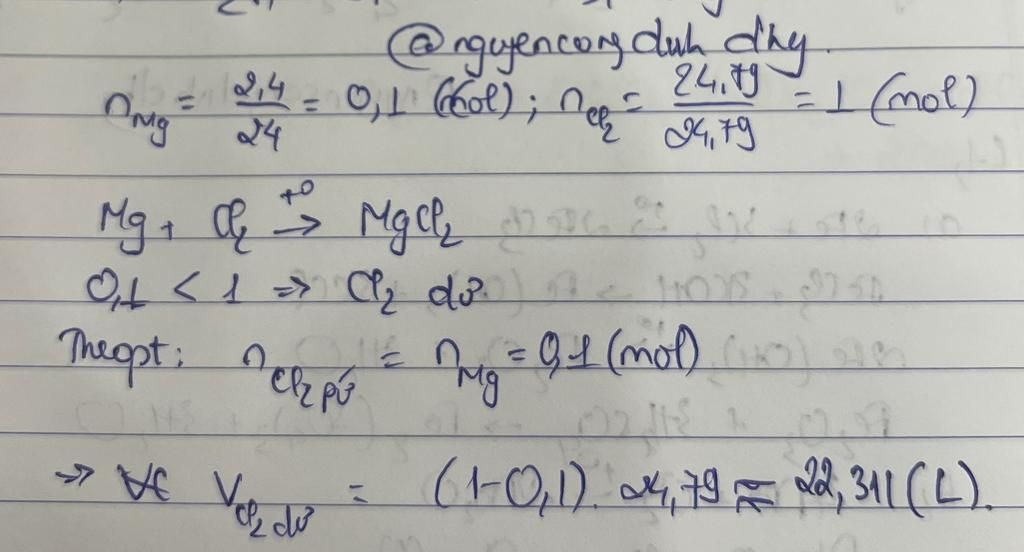 @nguyencongduh dhy.
n_Mg = 2,4/24 = 0,1 (mol); n_Cl₂ = 24,79/24,79 = 1 (mol)
Mg + Cl₂ →(t°) MgCl₂
0,1 < 1 ⇒ Cl₂ dư.
Theo pt: n_Cl₂ pứ = n_Mg = 0,1 (mol)
⇒ V_Cl₂ dư = (1-0,1). 24,79 = 22,311 (L).